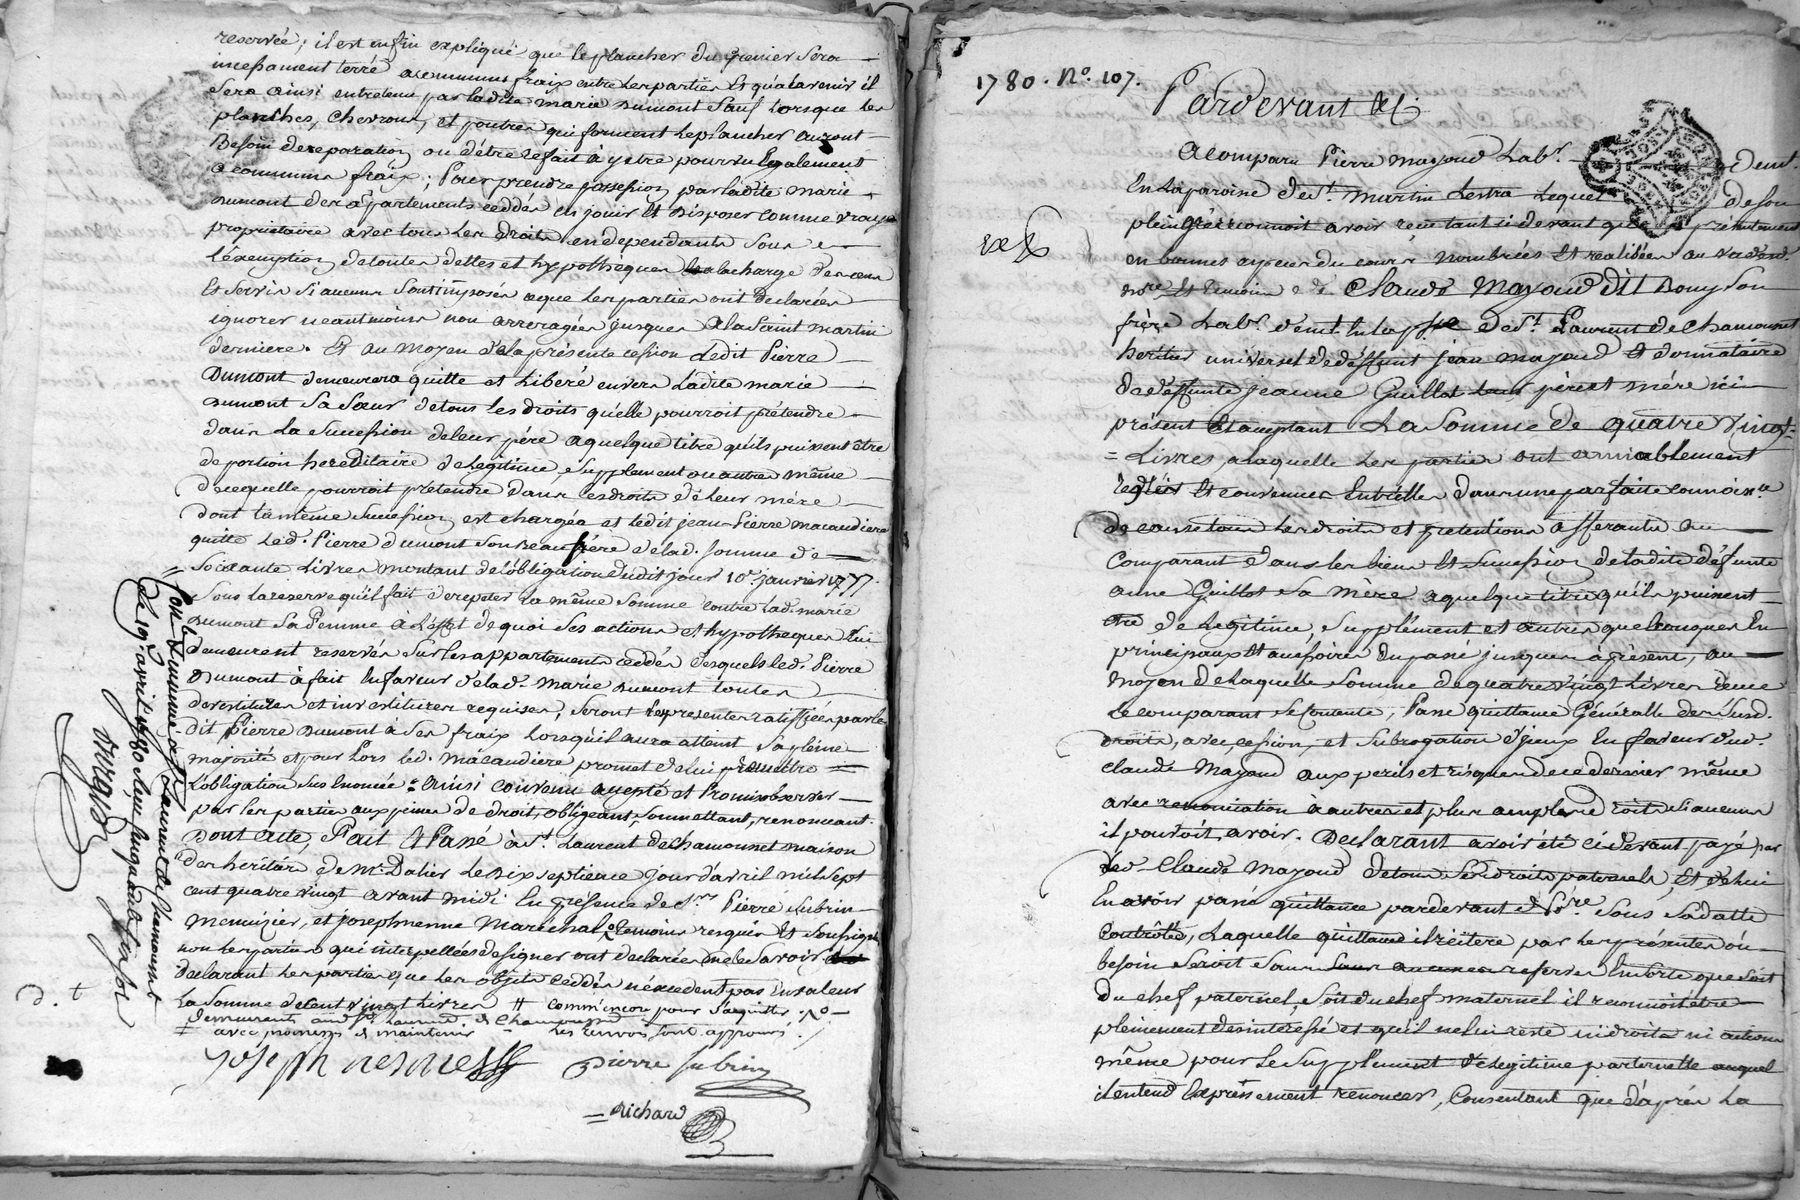 reservée; il est enfin expliqué que le plancher du grenier sera
incessament terré a communs fraix entre les parties et qu'a l'avenir il
sera ainsi entretenu par ladite marie Dumont sauf lorsque les
planches, chevrons, et poutres qui forment le plancher auront
Besoin de reparation ou d'être refait à y etre pourvu Egalement
a communs fraix; Pour prendre possession par ladite marie
Dumont des apartements ceddés en jouir et disposer comme vraye
proprietaire avec tous les droits en dependants sous
l'exemption de toutes dettes et hypothèques la charge des cens
Et servis si aucuns sont imposés ce que les parties ont declarées
ignorer neantmoins non arreragés jusques a la saint martin
derniere. Et au moyen de la présente cession ledit Pierre
Dumont demeurera quitte et Libéré envers Ladite marie
Dumont sa sœur de tous les droits qu'elle pourroit prétendre
dans La succession de leur père a quelque titre qu'ils puissent être
de portion hereditaire de Legitime, supplement ou autre même
de ce quelle pourroit pretendre dans les droits de Leur mére
dont la même succession est chargée et ledit jean-Pierre macaudiere
quitte led. Pierre dumont son Beau frére de lad. somme de
soixante Livres montant de l'obligation dudit jour 10e janvier 1777.
sous la reserve qu'il fait de repeter la même somme contre lad. marie
dumont sa Femme à L'effet de quoi ses actions et hypotheques lui
demeurent reservés sur les appartements ceddés desquels led. Pierre
Dumont à fait En faveur de lad. Marie dumont toutes
devestitures et investitures requises, seront les presentes ratiffiées par le
dit Pierre Dumont à ses fraix Lorsqu'il aura atteint sa pleine
majorité et pour Lors led. Macaudiere promet de lui remettre
L'obligation sus enoncée = Ainsi convenu accepté et Promis observer
par les parties aux peines de droit, obligeant, soumettant, renonceant.
Dont acte, Fait et Passé à St. Laurent de chamousset maison
des heritiers de Mr. Dalier Le dix septieme jour d'avril mil sept
cent quatre vingt avant midi En presence de Sr. Pierre subrin
menuizier, et joseph nesme Maréchal temoins requis Et soussignés
non les parties qui interpellées de signer ont declarées ne le savoir
declarant les parties que les objets ceddés n'éxcedent pas En valeur
La somme de cent vingt Livres # commencon pour s'aquitter
demeurants aud. St. Laurent de Chamousset
avec promesse de maintenir les renvois sont approuvés.
joseph nesme
Pierre subrin
Richard
d. t
Con.lé Emminé à St. Laurent de chamousset
Le 19 avril 1780
1780. No. 107.
Pardevant &c.
A comparu Pierre mazoud Labr. demt.
En la paroisse de St. martin Lestra Lequel de son
plein gré reconnoit avoir reçu tant cidevant que présentement
en bonnes especes du cours nombrées Et realisées au vu dud.
nore. Et temoins de Claude Mazoud dit Bouyson
frère Labr. demt. En la psse de St. Laurent de chamousset
heritier universel de deffunt jean mazoud Et donnataire
de deffunte jeanne Guillot leur père et mére ici
présent Et acceptant La somme de quatre vingt
Livres, a laquelle les parties ont amiablement
reglées Et convenues Entr'elles dans une parfaite connoisse.
de cause tous les droits et pretentions afferants au
comparant dans les biens Et succession de ladite défunte
anne Guillot sa mère a quelque titre qu'ils puissent
être de Legitime, supplément et autres quelconques En
principaux Et accessoires du passé jusques à présent, au
moyen de Laquelle somme de quatre vingt Livres
le comparant se contente, Passe quittance Générale des susd.
droits, avec cession, et subrogation d'yceux En faveur dud.
claude Mazoud aux perils et risques de ce dernier même
avec renonciation à autres et plus amples droits si aucuns
il pouvoit, avoir. Declarant avoir été cidevant payé par
led. Claude Mazoud de tous ses droits paternels, Et de lui
En avoir passé quittance pardevant sous sa datte
contrôlée, Laquelle quittance il réïtere par les présentes où
besoin seroit sans aucunes reserves En sorte que soit
du chef paternel, soit du chef maternel il reconnoit être
pleinement desinteressé et qu'il ne lui reste ni droits ni actions
même pour le supplément de Legitime paternelle auquel
il entend Expressement renoncer, Consentant que d'après La